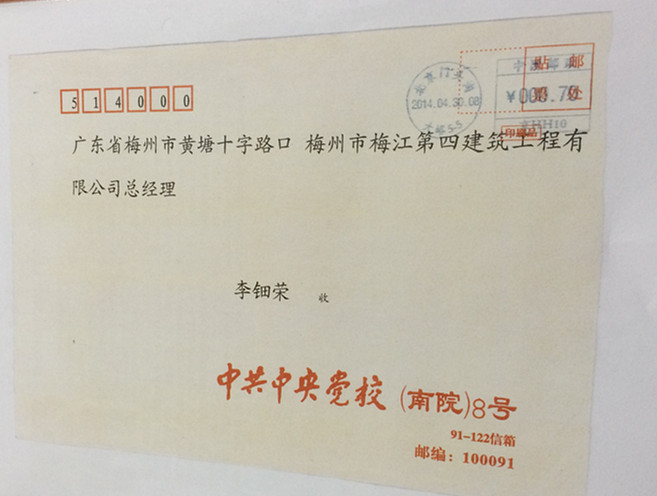 514000
贴 邮
票 处
2014.04.30.08
¥000.70
印刷品
广东省梅州市黄塘十字路口 梅州市梅江第四建筑工程有
限公司总经理
李钿荣 收
中共中央党校(南院)8号
91-122信箱
邮编：100091